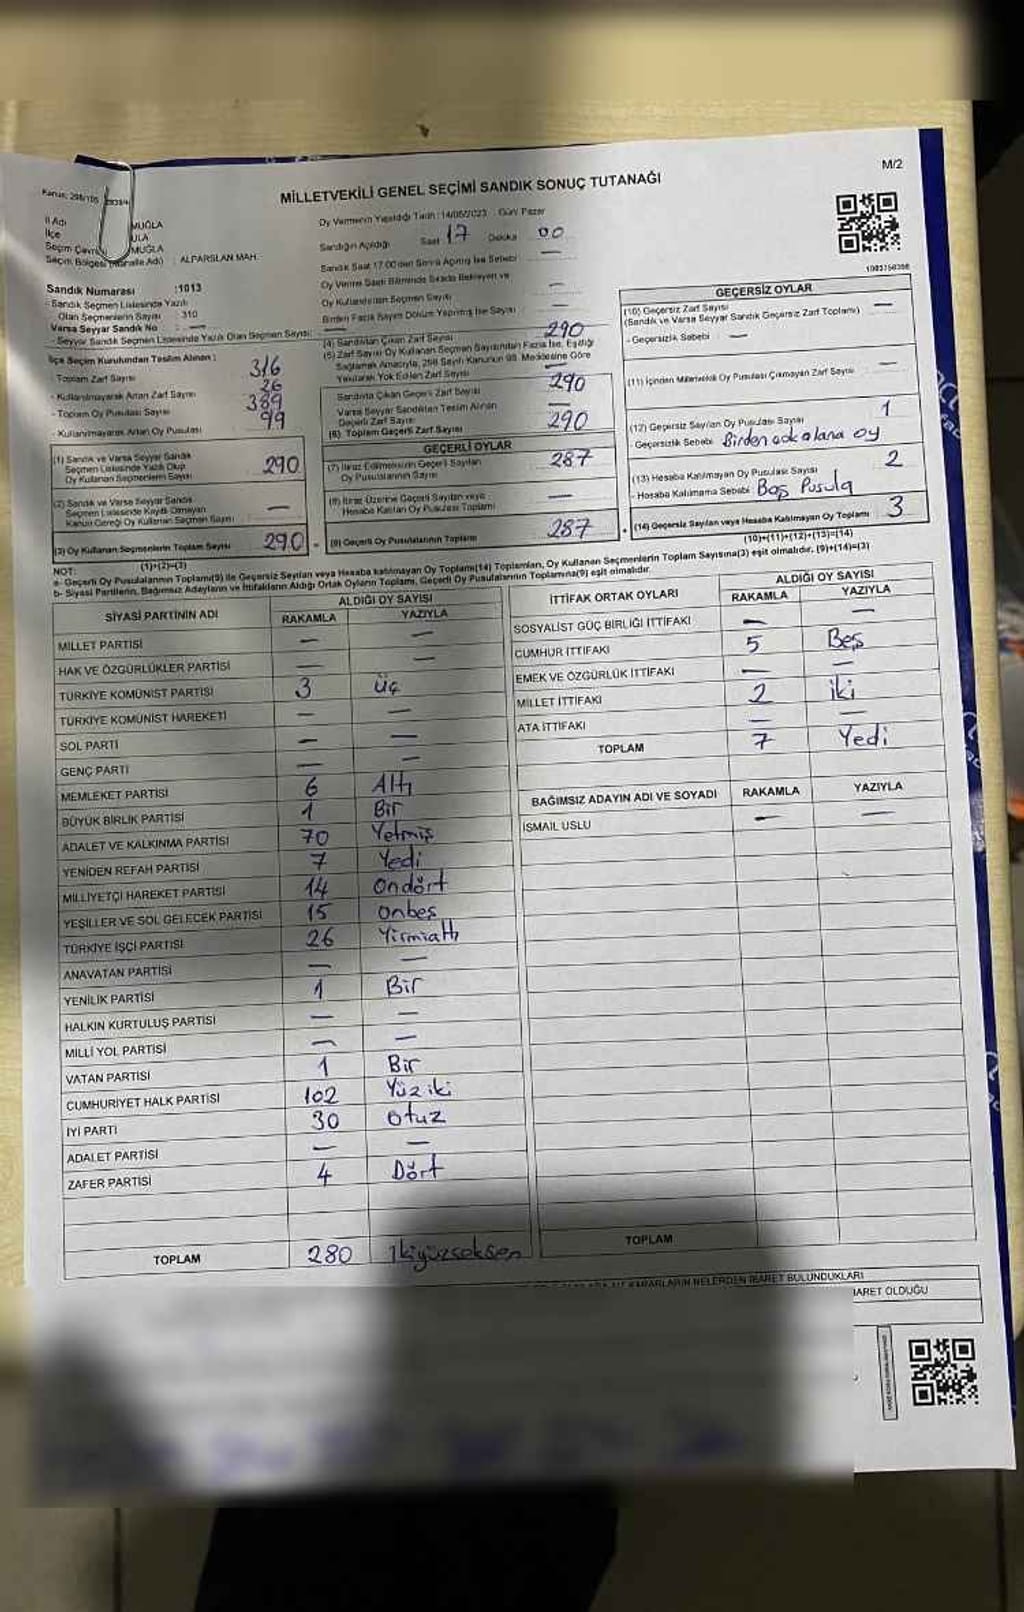 MİLLETVEKİLİ GENEL SEÇİMİ SANDIK SONUÇ TUTANAĞI
M/2
Kanun: 298/105
İl Adı MUĞLA
İlçe ULA
Seçim Çevre MUĞLA
Seçim Bölgesi (Mahalle Adı) : ALPARSLAN MAH.
Oy Vermenin Yapıldığı Tarih : 14/05/2023 Günü Pazar
Sandığın Açıldığı Saat 17 Dakika 00
Sandık Saat 17:00'den Sonra Açılmış İse Sebebi —
Oy Verme Saati Bitiminde Sırada Bekleyen ve
Oy Kullandırılan Seçmen Sayısı —
Birden Fazla Sayım Döküm Yapılmış İse Sayısı —
Sandık Numarası :1013
- Sandık Seçmen Listesinde Yazılı
Olan Seçmenlerin Sayısı : 310
Varsa Seyyar Sandık No : —
- Seyyar Sandık Seçmen Listesinde Yazılı Olan Seçmen Sayısı: —
İlçe Seçim Kurulundan Teslim Alınan :
- Toplam Zarf Sayısı 316
- Kullanılmayarak Artan Zarf Sayısı 26
- Toplam Oy Pusulası Sayısı 389
- Kullanılmayarak Artan Oy Pusulası 99
(1) Sandık ve Varsa Seyyar Sandık
Seçmen Listesinde Yazılı Olup
Oy Kullanan Seçmenlerin Sayısı 290
(2) Sandık ve Varsa Seyyar Sandık
Seçmen Listesinde Kayıtlı Olmayan
Kanun Gereği Oy Kullanan Seçmen Sayısı —
(3) Oy Kullanan Seçmenlerin Toplam Sayısı 290
(1)+(2)=(3)
(4) Sandıktan Çıkan Zarf Sayısı 290
(5) Zarf Sayısı Oy Kullanan Seçmen Sayısından Fazla İse, Eşitliği
Sağlamak Amacıyla, 298 Sayılı Kanunun 98. Maddesine Göre
Yakılarak Yok Edilen Zarf Sayısı —
Sandıkta Çıkan Geçerli Zarf Sayısı 290
Varsa Seyyar Sandıktan Teslim Alınan
Geçerli Zarf Sayısı —
(6) Toplam Geçerli Zarf Sayısı 290
GEÇERLİ OYLAR
(7) İtiraz Edilmeksizin Geçerli Sayılan
Oy Pusulasının Sayısı 287
(8) İtiraz Üzerine Geçerli Sayılan veya
Hesaba Katılan Oy Pusulası Toplamı —
(9) Geçerli Oy Pusulalarının Toplamı 287
GEÇERSİZ OYLAR
(10) Geçersiz Zarf Sayısı —
(Sandık ve Varsa Seyyar Sandık Geçersiz Zarf Toplamı)
- Geçersizlik Sebebi : —
(11) İçinden Milletvekili Oy Pusulası Çıkmayan Zarf Sayısı —
(12) Geçersiz Sayılan Oy Pusulası Sayısı 1
- Geçersizlik Sebebi : Birden çok alana oy
(13) Hesaba Katılmayan Oy Pusulası Sayısı 2
- Hesaba Katılmama Sebebi : Boş Pusula
(14) Geçersiz Sayılan veya Hesaba Katılmayan Oy Toplamı 3
(10)+(11)+(12)+(13)=(14)
NOT:
a- Geçerli Oy Pusulalarının Toplamı(9) ile Geçersiz Sayılan veya Hesaba katılmayan Oy Toplamı(14) Toplamları, Oy Kullanan Seçmenlerin Toplam Sayısına(3) eşit olmalıdır. (9)+(14)=(3)
b- Siyasi Partilerin, Bağımsız Adayların ve İttifakların Aldığı Ortak Oyların Toplamı, Geçerli Oy Pusulalarının Toplamına(9) eşit olmalıdır.
SİYASİ PARTİNİN ADI ALDIĞI OY SAYISI
RAKAMLA YAZIYLA
MİLLET PARTİSİ — —
HAK VE ÖZGÜRLÜKLER PARTİSİ — —
TÜRKİYE KOMÜNİST PARTİSİ 3 üç
TÜRKİYE KOMÜNİST HAREKETİ — —
SOL PARTİ — —
GENÇ PARTİ — —
MEMLEKET PARTİSİ 6 Altı
BÜYÜK BİRLİK PARTİSİ 1 Bir
ADALET VE KALKINMA PARTİSİ 70 Yetmiş
YENİDEN REFAH PARTİSİ 7 Yedi
MİLLİYETÇİ HAREKET PARTİSİ 14 Ondört
YEŞİLLER VE SOL GELECEK PARTİSİ 15 Onbeş
TÜRKİYE İŞÇİ PARTİSİ 26 Yirmialtı
ANAVATAN PARTİSİ — —
YENİLİK PARTİSİ 1 Bir
HALKIN KURTULUŞ PARTİSİ — —
MİLLİ YOL PARTİSİ — —
VATAN PARTİSİ 1 Bir
CUMHURİYET HALK PARTİSİ 102 Yüziki
İYİ PARTİ 30 Otuz
ADALET PARTİSİ — —
ZAFER PARTİSİ 4 Dört
TOPLAM 280 İkiyüzseksen
İTTİFAK ORTAK OYLARI ALDIĞI OY SAYISI
RAKAMLA YAZIYLA
SOSYALİST GÜÇ BİRLİĞİ İTTİFAKI — —
CUMHUR İTTİFAKI 5 Beş
EMEK VE ÖZGÜRLÜK İTTİFAKI — —
MİLLET İTTİFAKI 2 iki
ATA İTTİFAKI — —
TOPLAM 7 Yedi
BAĞIMSIZ ADAYIN ADI VE SOYADI RAKAMLA YAZIYLA
İSMAİL USLU — —
TOPLAM
KARARLARIN NELERDEN İBARET BULUNDUKLARI
İBARET OLDUĞU